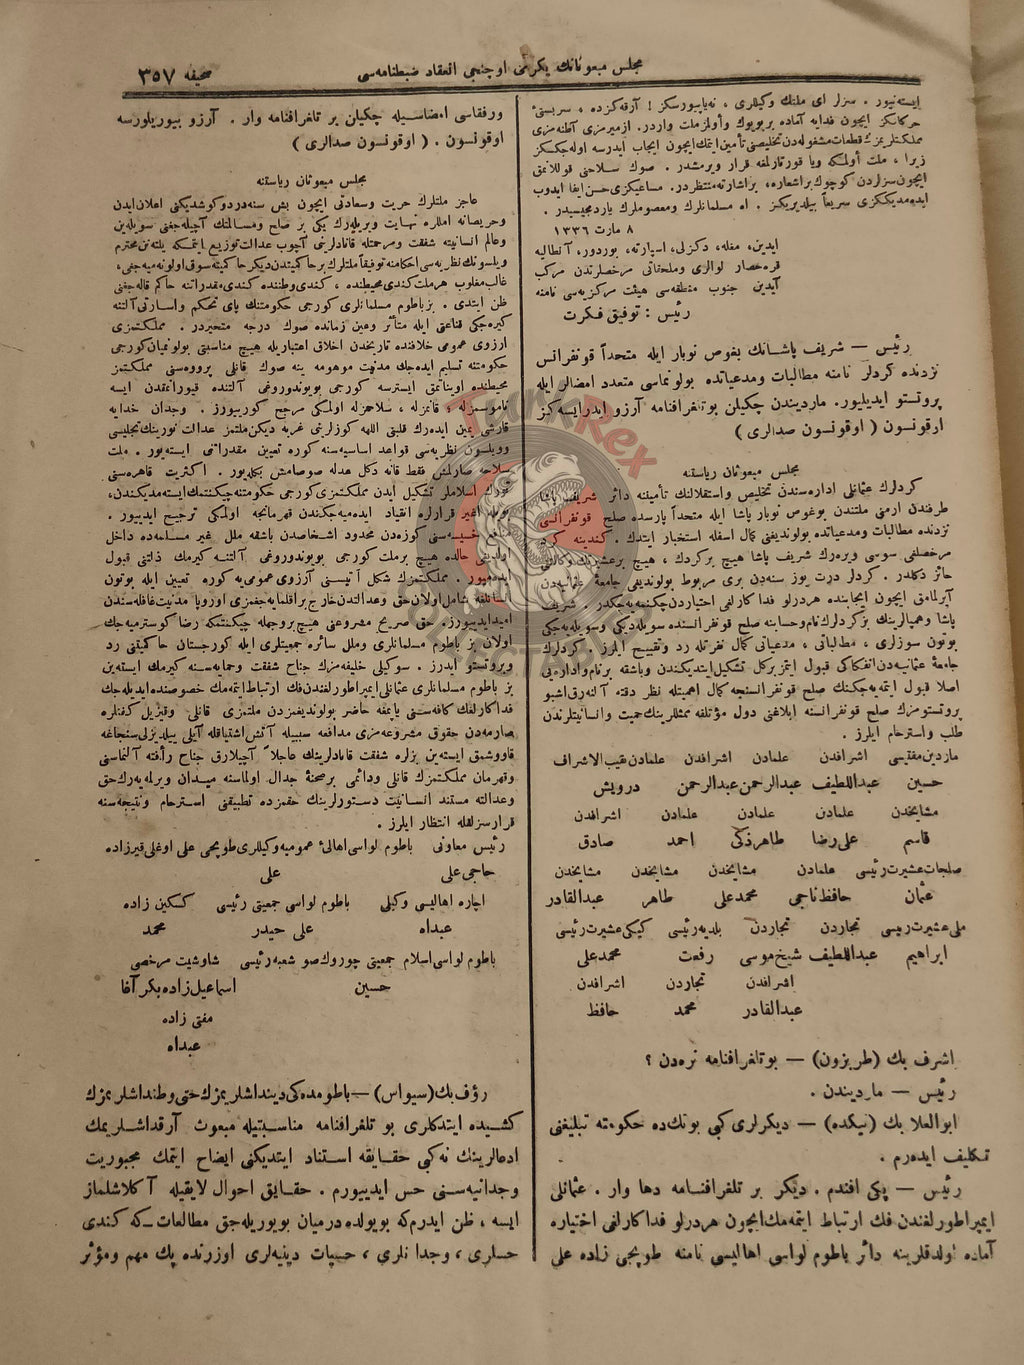 مجلس مبعوثانك يكرمى اوچنجى انعقاد ضبطنامه‌سى
صحيفه ٣٥٧
ايسته‌نيور . سزلر اى ملتك وكيللرى ، نه ياپيورسكز ! آرقه‌كزده ، سربستئ
حركاتكز ايچون فدايه آماده بربويوك واولز ملت واردر. ازميرمزى آطنه‌مزى
مملكتلريمزك قطعات مشغوله‌دن تخليصنى تأمين ايتمك ايچون ايجاب ايدرسه اوله‌جكسكز
زيرا ، ملت اولمكه ويا قورتارلمغه قرار ويرمشدر . صوك سلاحنى قوللانمق
ايچون سزلردن كوچوك براشعاره، براشارته منتظردر. مساعيكزى حسن ايفا ايدوب
ايده‌مديككزى سريعاً بيلديريكز. اه مسلمانلرك ومعصوملرك ياردمجيسيدر .
٨ مارت ١٣٣٦
ايدين، مغله، دكزلى، اسپارته، بوردور، آنطاليه
قره‌حصار لوالرى وملحقاتى مرخصلرندن مركب
آيدين جنوب منطقه‌سى هيئت مركزيه‌سى نامنه
رئيس : توفيق فكرت
رئيس — شريف پاشانك بغوص نوبار ايله متحداً قونفرانس
نزدنده كردلر نامنه مطالبات ومدعياتده بولونماسى متعدد امضالر ايله
پروتستو ايديليور. ماردیندن چكيلن بوتلغرافنامه آرزو ايدرايسه‌كز
اوقونسون ( اوقونسون صدالرى )
مجلس مبعوثان رياستنه
كردلرك عثمانلى اداره‌سندن تخليص واستقلالنك تأميننه دائر شريف پاشا
طرفندن ارمنى ملتندن بوغوص نوبار پاشا ايله متحداً پارسده صلح قونفرانسى
نزدنده مطالبات ومدعياتده بولونديغنى كمال اسفله استخبار ايتدك . كندينه كرد
مرخصلغى سوسى ويره‌رك شريف پاشا هيچ بركردك ، هيچ برعشيرتك وكالتنى
حائز دكلدر . كردلر درت يوز سنه‌دن برى مربوط بولونديغى جامعهٔ عثمانيه‌دن
آيرلمامق ايچون ايجابنده هردرلو فداكارلغى اختياردن چكنميه‌جكدر . شريف
پاشا وهمپالرينك بز كردلرك نام وحسابنه صلح قونفرانسنده سويله‌ديكى وسويليه‌جكى
بوتون سوزلرى ، مطالباتى ، مدعياتى كمال نفرتله رد وتقبيح ايلرز . كردلرك
جامعهٔ عثمانيه‌دن انفكاكى قبول ايتمز بركل تشكيل ايتديكندن وباشقه برنام واداره‌يى
اصلا قبول ايتميه‌جكنك صلح قونفرانسنجه كمال اهميتله نظر دقته آلنه‌رق اشبو
پروتستومزك صلح قونفرانسنه ابلاغنى دول مؤتلفه ممثللرينك حميت وانسانيتلرندن
طلب واسترحام ايلرز .
ماردين مفتيسى اشرافدن علمادن اشرافدن علمادن نقيب الاشراف
حسين عبداللطيف عبدالرحمن عبدالرحمن درويش
مشايخدن علمادن علمادن علمادن اشرافدن
قاسم على رضا طاهر زكى احمد صادق
صلجات عشيرت رئيسى علمادن مشايخدن مشايخدن مشايخدن
عثمان حافظ ناجى محمد على طاهر عبدالقادر
ملى عشيرت رييسى تجاردن تجاردن بلديه رئيسى كيكى عشيرت رئيسى
ابراهيم عبداللطيف شيخ موسى رفعت محمد على
اشرافدن تجاردن اشرافدن
عبدالقادر محمد حافظ
اشرف بك (طربزون) — بوتلغرافنامه نره‌دن ؟
رئيس — ماردیندن .
ابوالعلا بك (نيكده) — ديكرلرى كبى بونك‌ده حكومته تبليغنى
تكليف ايده‌رم .
رئيس — پكى افندم . ديكر بر تلغرافنامه دها وار . عثمانلى
ايمپراطورلغندن فك ارتباط ايتمه‌مك ايچون هردرلو فداكارلغى اختياره
آماده اولدقلرينه دائر باطوم لواسى اهاليسى نامنه طوپجى زاده على
ورفقاسى امضاسيله چكيلن بر تلغرافنامه وار . آرزو بيوريلورسه
اوقونسون . ( اوقونسون صدالرى )
مجلس مبعوثان رياستنه
عاجز ملتلرك حريت وسعادتى ايچون بش سنه‌در دوكوشديكنى اعلان ايدن
وحريصانه امللره نهايت ويريله‌رك يكى بر صلح ومسالمتك آچيله‌جغنى سويلين
وعالم انسانيته شفقت ومرحمتله قنادلرنى آچوب عدالت توزيع ايتمكه يلتنن محترم
ويلسونك نظريه‌سى احكامنه توفيقاً ملتلرك برحاكميتدن ديكر حاكميته سوق اولونه‌ميه‌جغى،
غالب مغلوب هرملت كندى محيطنده ، كندى وطننده كندى مقدراتنه حاكم قاله‌جغنى
ظن ايتدى . بز باطوم مسلمانلرى كورجى حكومتنك پاى تحكم واسارتى آلتنه
كيره‌جكى قناعتى ايله متأثر وعين زمانده صوك درجه متحيردر . مملكتمزى
آرزوى عمومى خلافنده تاريخدن اخلاق اعتباريله هيچ مناسبتى بولونميان كورجى
حكومتنه تسليم ايده‌جك مدنيت موهومه ينه صوك قانلى پرووه‌سنى مملكتمز
محيطنده اويناتمق ايسترسه كورجى بويوندوروغى آلتنده قيورانمقدن ايسه
ناموسمزله ، قانمزله ، سلاحمزله اولمكى مرجح كورييورز . وجدان خدايه
قارشى يمين ايده‌رك قلبنى اللهه كوزلرينى غربه ديكن ملتمز عدالت نورينك تجليسى
وويلسون نظريه‌سى قواعد اساسيه‌سنه كوره تعيين مقدراتنى ايسته‌يور . ملت
سلاحه صارلمش فقط قانه دكل عدله صوصامش بكله‌يور . اكثريت قاهره‌سنى
تورك اسلاملر تشكيل ايدن مملكتمزى كورجى حكومتنه چيكنتمك ايسته‌مديكندن،
غير قرارلره انقياد ايده‌ميه‌جكندن قهرمانجه اولمكى ترجيح ايدييور .
خسيسه‌سنى كوزه‌دن محدود اشخاصدن باشقه ملل غير مسلمه‌ده داخل
اولديغى حالده هيچ برملت كورجى بويوندوروغى آلتنه كيرمك ذلتنى قبول
ايده‌مه‌يور . مملكتمزك شكل آتيسنى آرزوى عموميه كوره تعيين ايله بوتون
انسانلغه شامل اولان حق وعدالتدن خارج براقلمايه‌جغمزى اوروپا مدنيت غافله‌سندن
اميد ايدييورز. حق صريح مشروعنى هيچ بروجهله چيكنتمكه رضا كوسترميه‌جك
اولان بز باطوم مسلمانلرى وملل سائره جمعيتلرى ايله كورجستان حاكميتنى رد
وپروتستو ايدرز . سوكيلى خليفه‌مزك جناح شفقت وحمايه‌سنه كيرمك ايسته‌ين
بز باطوم مسلمانلرى عثمانلى ايمپراطورلغندن فك ارتباط ايتمه‌مك خصوصنده ايديله‌جك
فداكارلغك كافه‌سنى ياپمغه حاضر بولونديغمزدن ملتمزى قانلى وقيزيل كفنلره
صارمه‌دن حقوق مشروعه‌مزى مدافعه سببيله آتش اشتياقله آيلى ييلديزلى سنجاغنه
قاووشمق ايسته‌ين بزلره شفقت قنادلرينك عاجلاً آچيلارق جناح رأفته آلنماسنى
وقهرمان مملكتمزك قانلى ودائمى برصحنهٔ جدال اولماسنه ميدان ويرلميه‌رك حق
وعدالته مستند انسانيت دستورلرينك حقمزده تطبيقنى استرحام ونتيجه‌سنه
قرارسزلقله انتظار ايلرز .
رئيس معاونى باطوم لواسى اهالئ عموميه وكيللرى طوپجى على اوغلى قيرزاده
حاجى على على
اچاره اهاليسى وكيلى باطوم لواسى جمعيتى رئيسى كسكين زاده
عبداه على حيدر محمد
باطوم لواسى اسلام جمعيتى چوروك‌صو شعبه رئيسى شاوشيت مرخصى
حسين اسماعيل زاده بكر آغا
مفتى زاده
عبداه
رؤف بك (سيواس) — باطومده‌كى دينداشلريمزك حتى وطنداشلريمزك
كشيده ايتدكلرى بو تلغرافنامه مناسبتيله مبعوث آرقداشلريمك
ادعالرينك نه كبى حقايقه استناد ايتديكنى ايضاح ايتمك مجبوريت
وجدانيه‌سنى حس ايدييورم . حقايق احوال لايقيله آكلاشلماز
ايسه ، ظن ايدرم كه بويولده درميان بويوريله‌جق مطالعات ـ كه كندى
حسلرى ، وجدانلرى ، حسيات دينيه‌لرى اوزرنده پك مهم ومؤثر
TurkRex